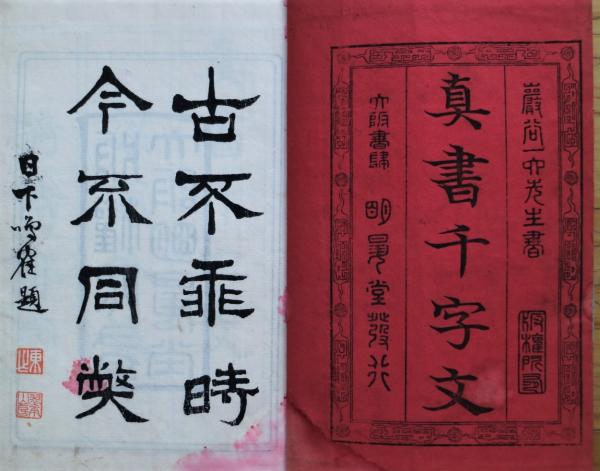 巖谷一六先生書
版權所有
真書千字文
大阪書肆 明昇堂發行
古不乖時
今不同弊
日下鳴雀題